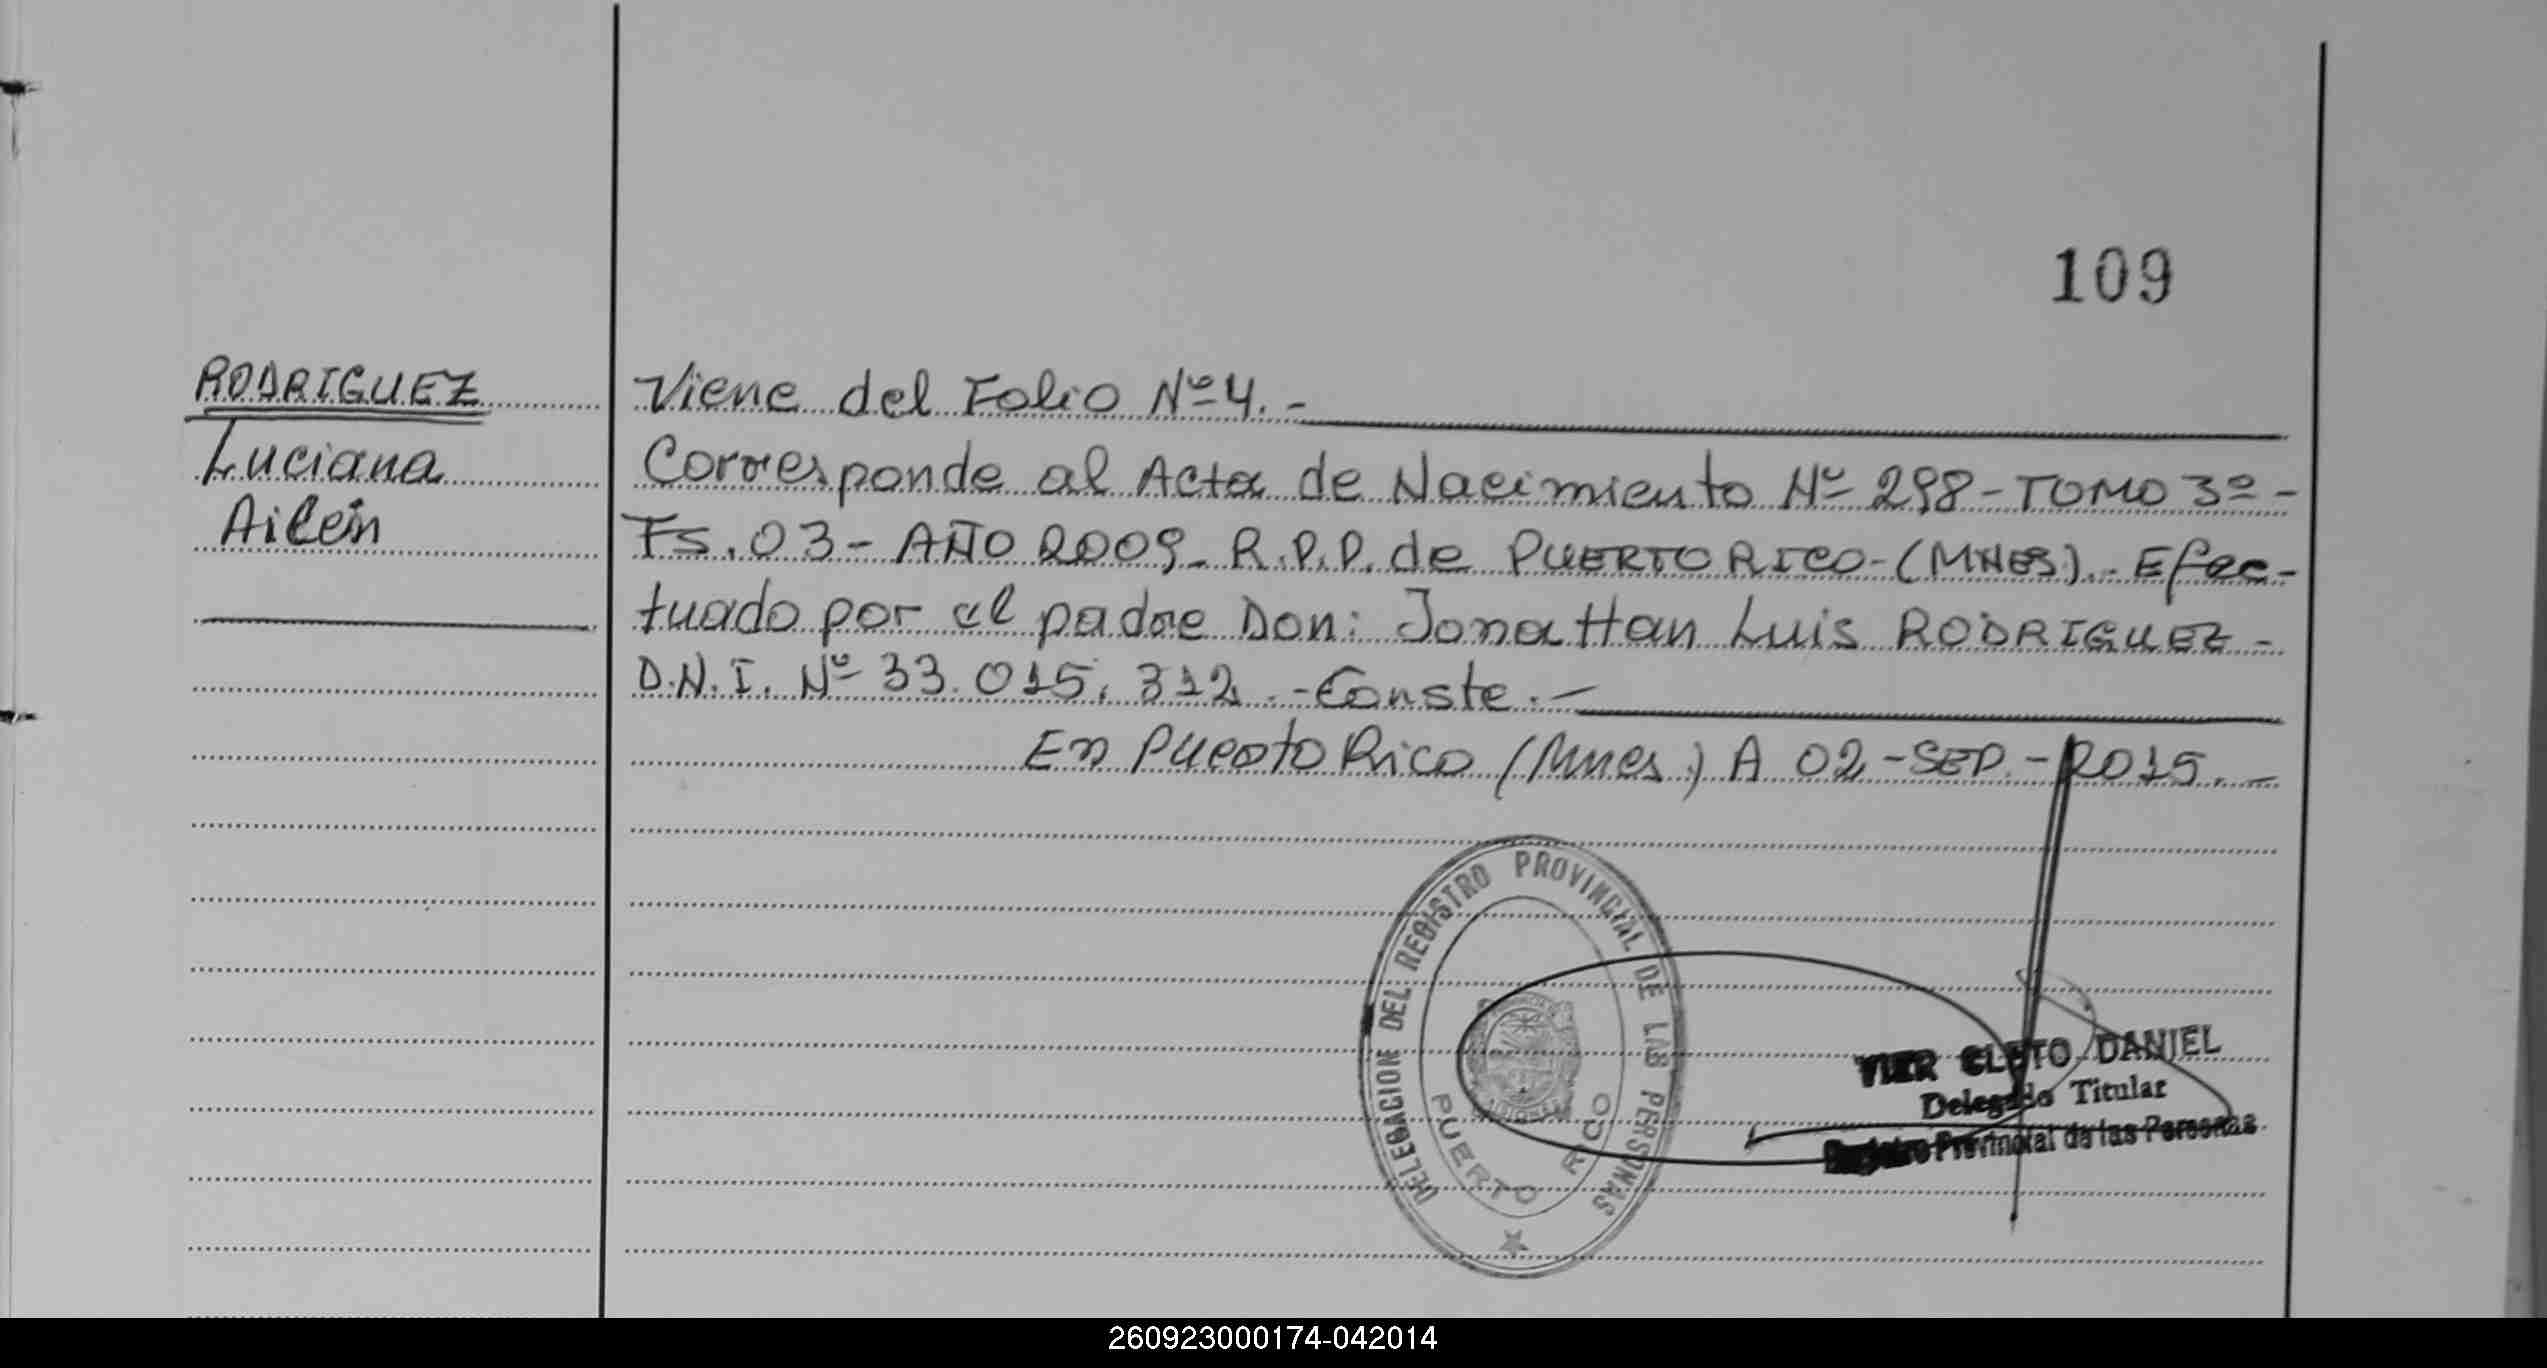 109
RODRIGUEZ
Luciana
Ailén
Viene del Folio Nº 4. -
Corresponde al Acta de Nacimiento Nº 298 - TOMO 3º -
Fs. 03 - AÑO 2009 - R.P.P. de PUERTO RICO - (MNES). Efec-
tuado por el padre Don: Jonattan Luis RODRIGUEZ -
D.N.I. Nº 33.015.312. - Conste. -
En Puerto Rico (Mnes) A 02 - SEP. - 2015. -
DELEGACION DEL REGISTRO PROVINCIAL DE LAS PERSONAS
PUERTO RICO
VIER CLETO DANIEL
Delegado Titular
Registro Provincial de las Personas
260923000174-042014